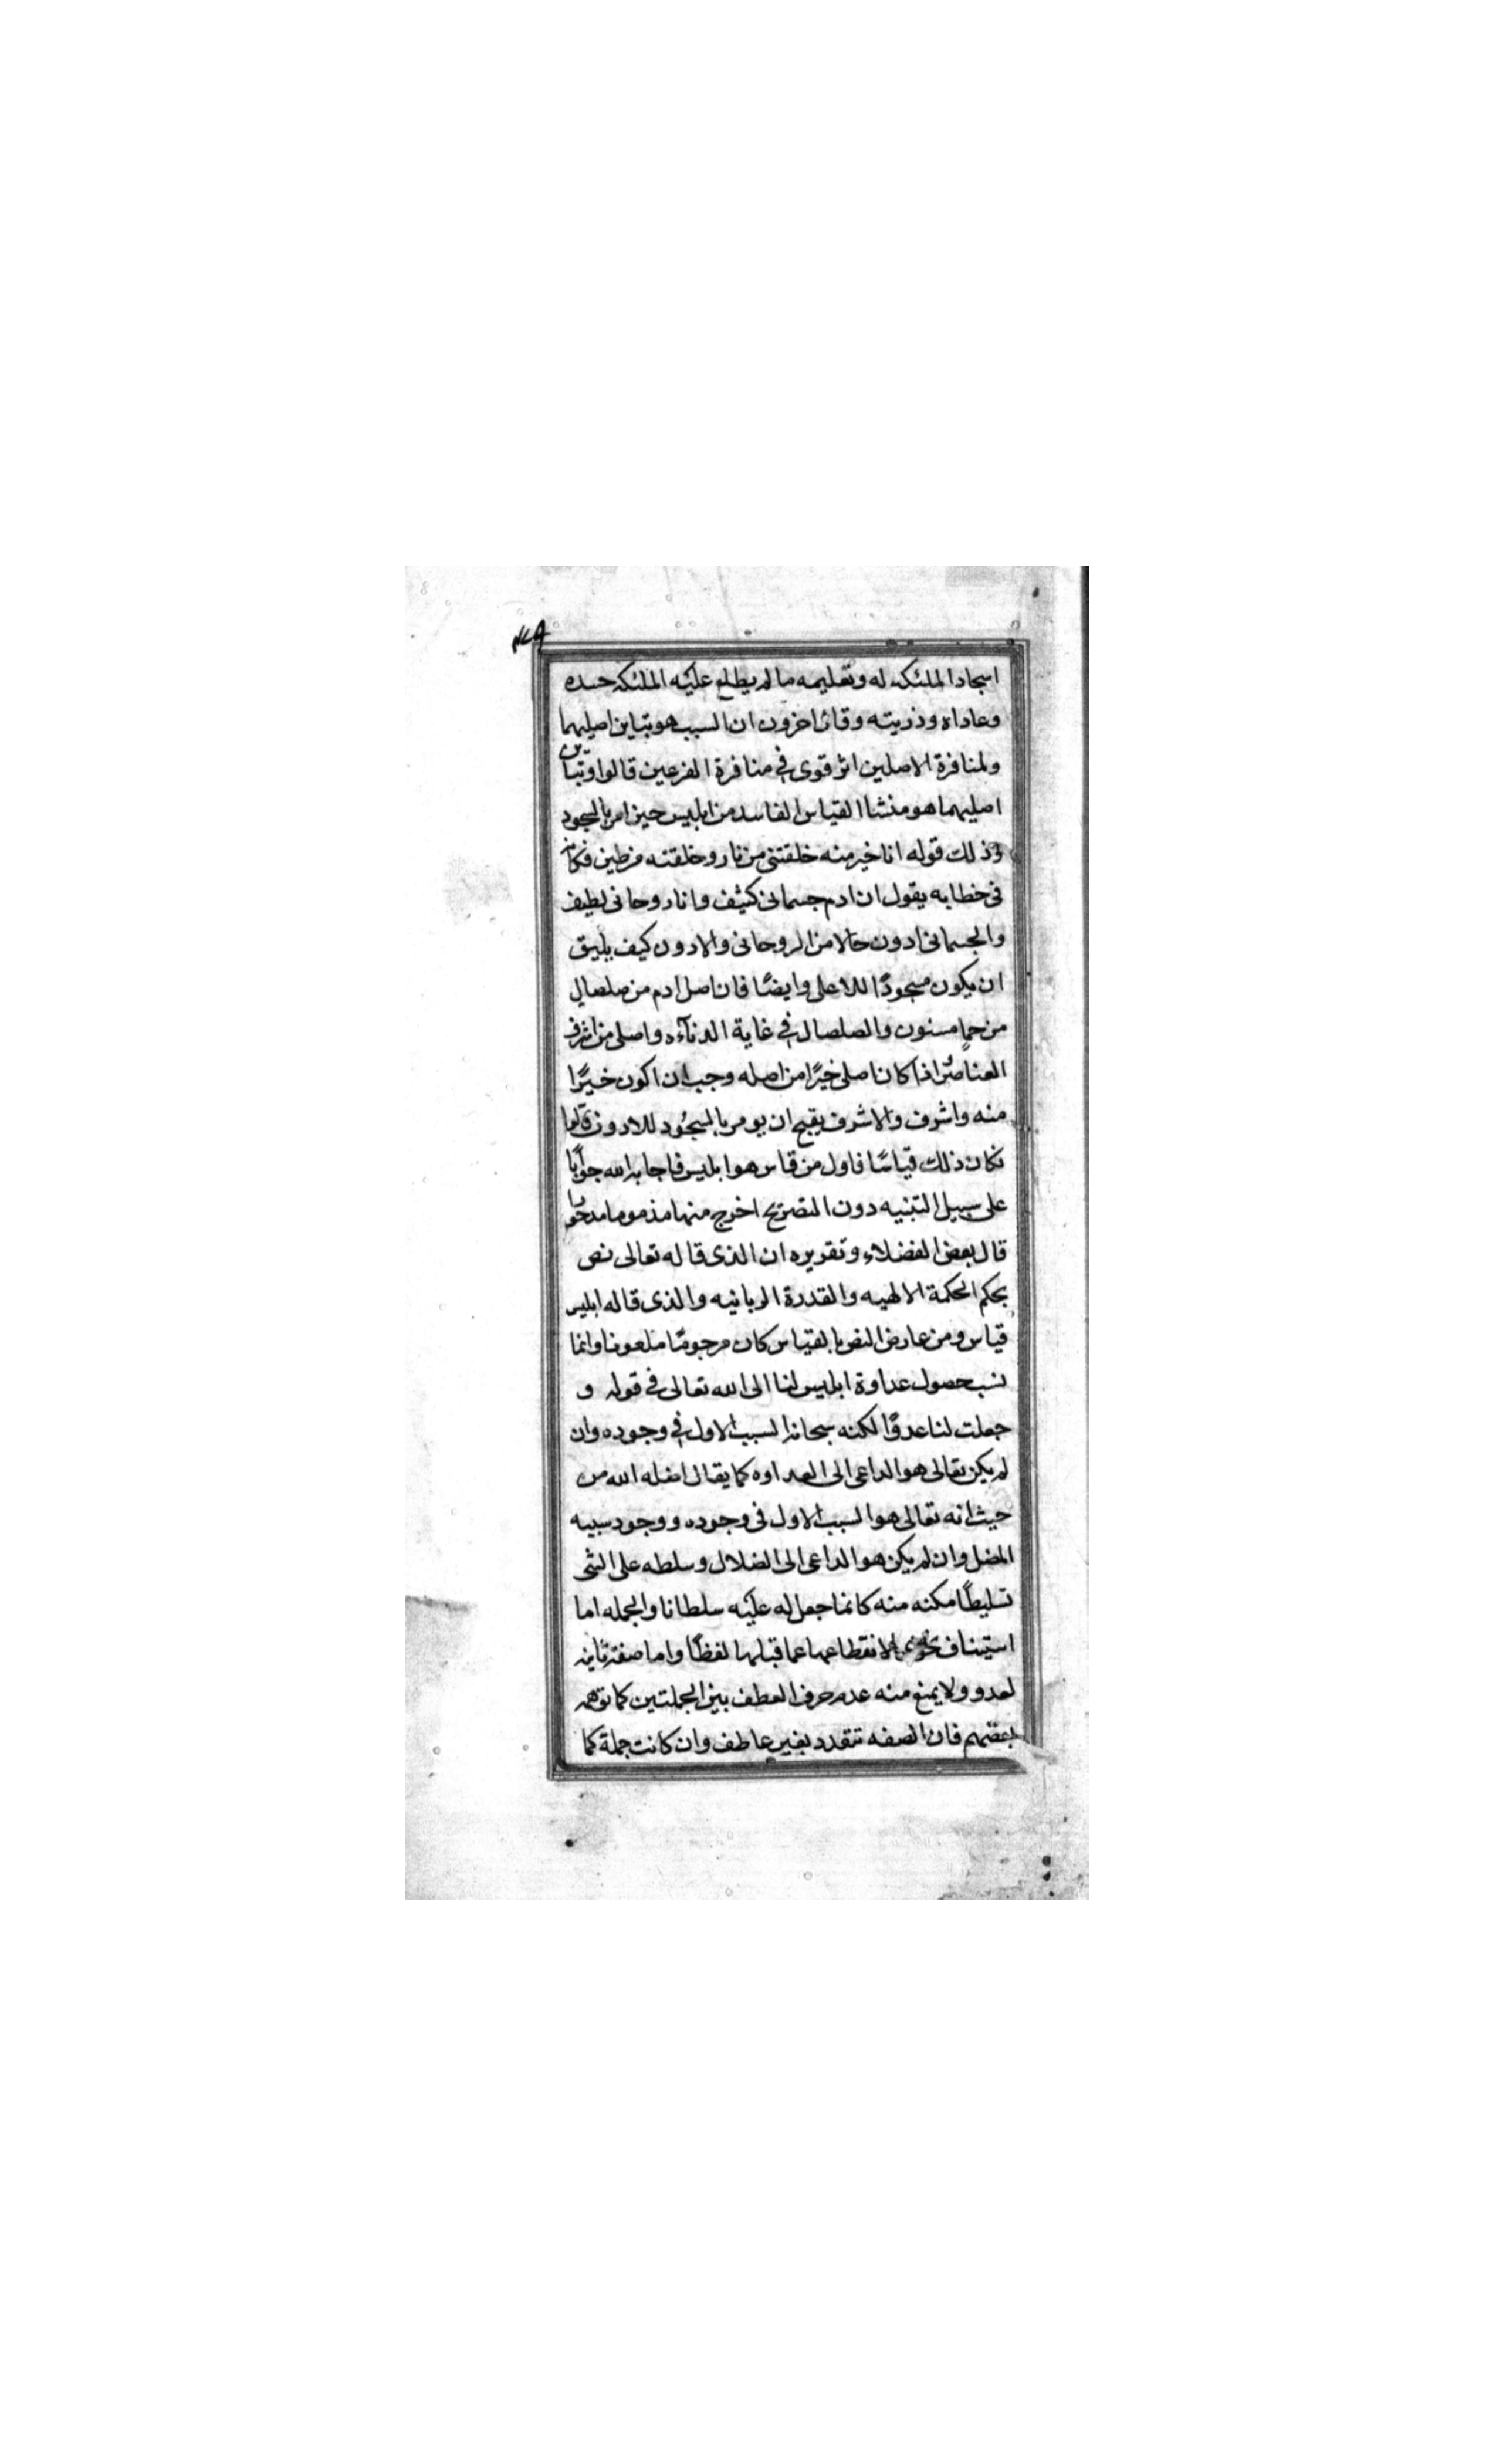 اسجاد الملئكه له وتعليمه ما لم يطلع عليه الملئكه حسده
وعاداه وذريته وقال اخرون ان السبب هو تباين اصليهما
ولمنافرة الاصلين اثر قوى فى منافرة الفرعين قالوا وتباين
اصليهما هو منشا القياس الفاسد من ابليس حين امر بالسجود
وذلك قوله انا خير منه خلقتنى من نار وخلقته من طين فكانه
فى خطابه يقول ان ادم جسمانى كثيف وانا روحانى لطيف
والجسمانى ادون حالا من الروحانى والادون كيف يليق
ان يكون مسجودًا للاعلى وايضًا فان اصل ادم من صلصال
من حمإ مسنون والصلصال فى غاية الدناءه واصلى من اشرف
العناصر واذا كان اصلى خيرًا من اصله وجب ان اكون خيرًا
منه واشرف والاشرف يقبح ان يومر بالسجود للادون قالوا
فكان ذلك قياسًا فاول من قاس هو ابليس فاجابه الله جوابًا
على سبيل التنبيه دون التصريح اخرج منها مذموما مدحورا
قال بعض الفضلاء وتقريره ان الذى قاله تعالى نص
بحكم الحكمة الالهيه والقدرة الربانيه والذى قاله ابليس
قياس ومن عارض النص بالقياس كان مرجومًا ملعونا وانما
نسب حصول عداوة ابليس لنا الى الله تعالى فى قوله و
جعلت لنا عدوًا لكنه سبحانه السبب الاول فى وجوده وان
لم يكن تعالى هو الداعى الى العداوه كما يقال اضله الله من
حيث انه تعالى هو السبب الاول فى وجوده ووجود سببه
المضل وان لم يكن هو الداعى الى الضلال وسلطه على الشى
تسليطًا مكنه منه كانما جعل له عليه سلطانا والجمله اما
استيناف نحوى لانقطاعها عما قبلها لفظًا واما صفة ثانيه
لعدو ولا يمنع منه عدم حرف العطف بين الجملتين كما توهمه
بعضهم فان الصفه تتعدد بغير عاطف وان كانت جملة كما